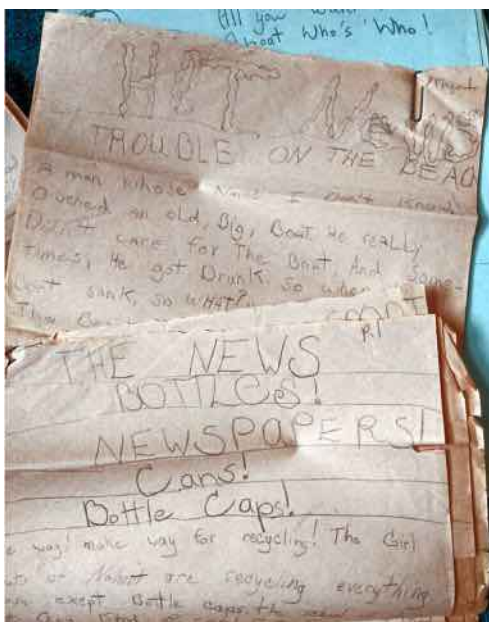 All you
About Who's Who!
HOT NEWS
TROUBLE ON THE BEACH
A man whose name I don't know,
owned an old, Big, Boat. He really
Didn't care for The Boat, And some-
times, He got Drunk. So when
Boat sank, so WHAT?
The Boat
THE NEWS
BOTTLES!
NEWSPAPERS!
Cans!
Bottle Caps!
way! make way for recycling! The Girl
are recycling everything
exept Bottle caps. the